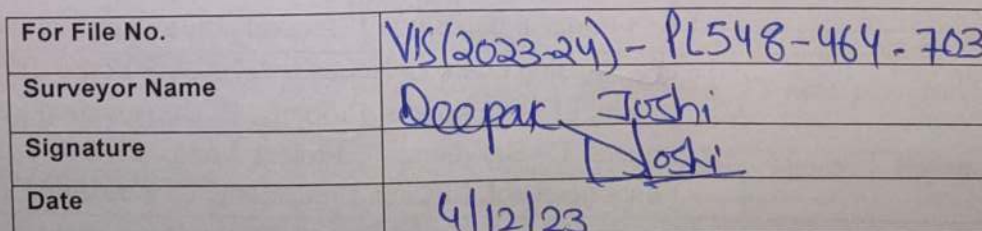 For File No. VIS(2023-24) - PL548-464-703
Surveyor Name Deepak Joshi
Signature DJoshi
Date 4/12/23